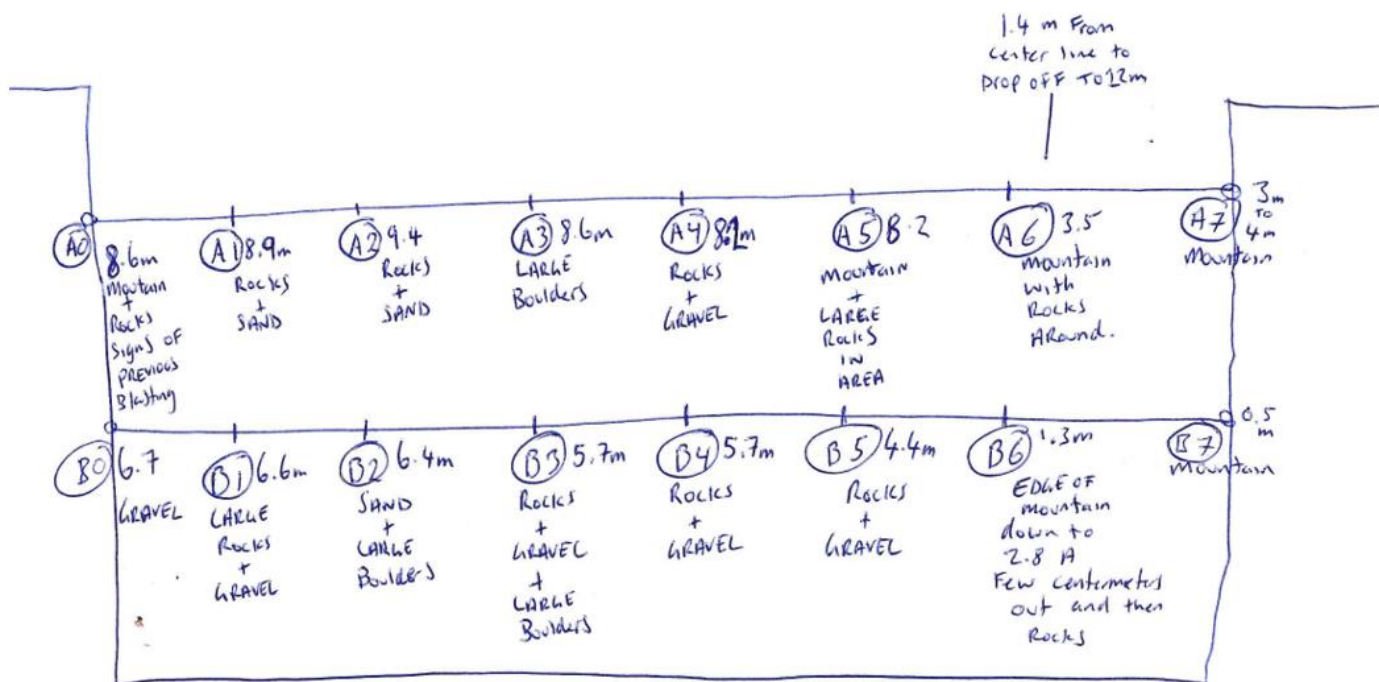 1.4 m From
Center line to
Drop off To 12m
A0
8.6m
Moutain
+
Rocks
Signs of
PREVIOUS
Blasting
A1 8.9m
Rocks
+
SAND
A2 9.4
Rocks
+
SAND
A3 8.6m
LARGE
Boulders
A4 8.2m
Rocks
+
GRAVEL
A5 8.2
Mountain
+
LARGE
Rocks
IN
AREA
A6 3.5
Mountain
with
Rocks
Around.
A7
3m
To
4m
Mountain
B0 6.7
GRAVEL
B1 6.6m
LARGE
Rocks
+
GRAVEL
B2 6.4m
SAND
+
LARGE
Boulders
B3 5.7m
Rocks
+
GRAVEL
+
LARGE
Boulders
B4 5.7m
Rocks
+
GRAVEL
B5 4.4m
Rocks
+
GRAVEL
B6 1.3m
EDGE OF
Mountain
down to
2.8 A
Few Centermeters
out and then
Rocks
B7
0.5
m
Mountain